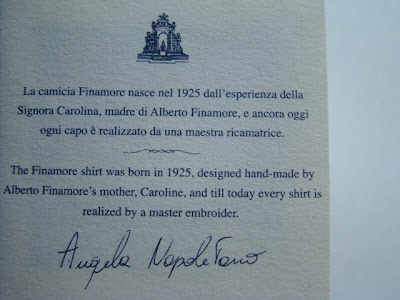 La camicia Finamore nasce nel 1925 dall'esperienza della
Signora Carolina, madre di Alberto Finamore, e ancora oggi
ogni capo è realizzato da una maestra ricamatrice.
The Finamore shirt was born in 1925, designed hand-made by
Alberto Finamore's mother, Caroline, and till today every shirt is
realized by a master embroider.
Angela Napoletano